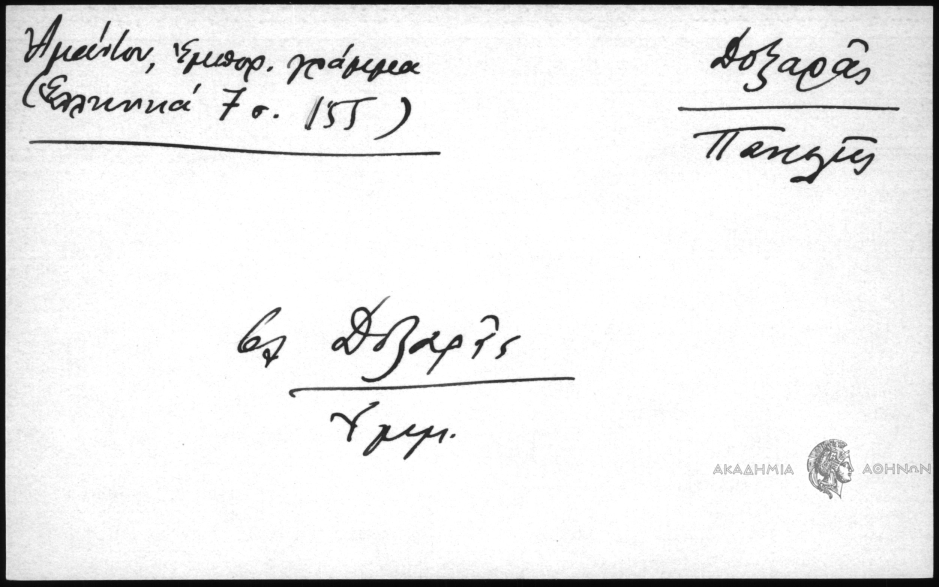 Ἀμάντου, Ἐμπορ. γράμμα
(Ἑλληνικά 7 σ. 155)
Δοξαρᾶς
Παναγῆς
βλ Δοξαρᾶς
ΑΚΑΔΗΜΙΑ ΑΘΗΝΩΝ